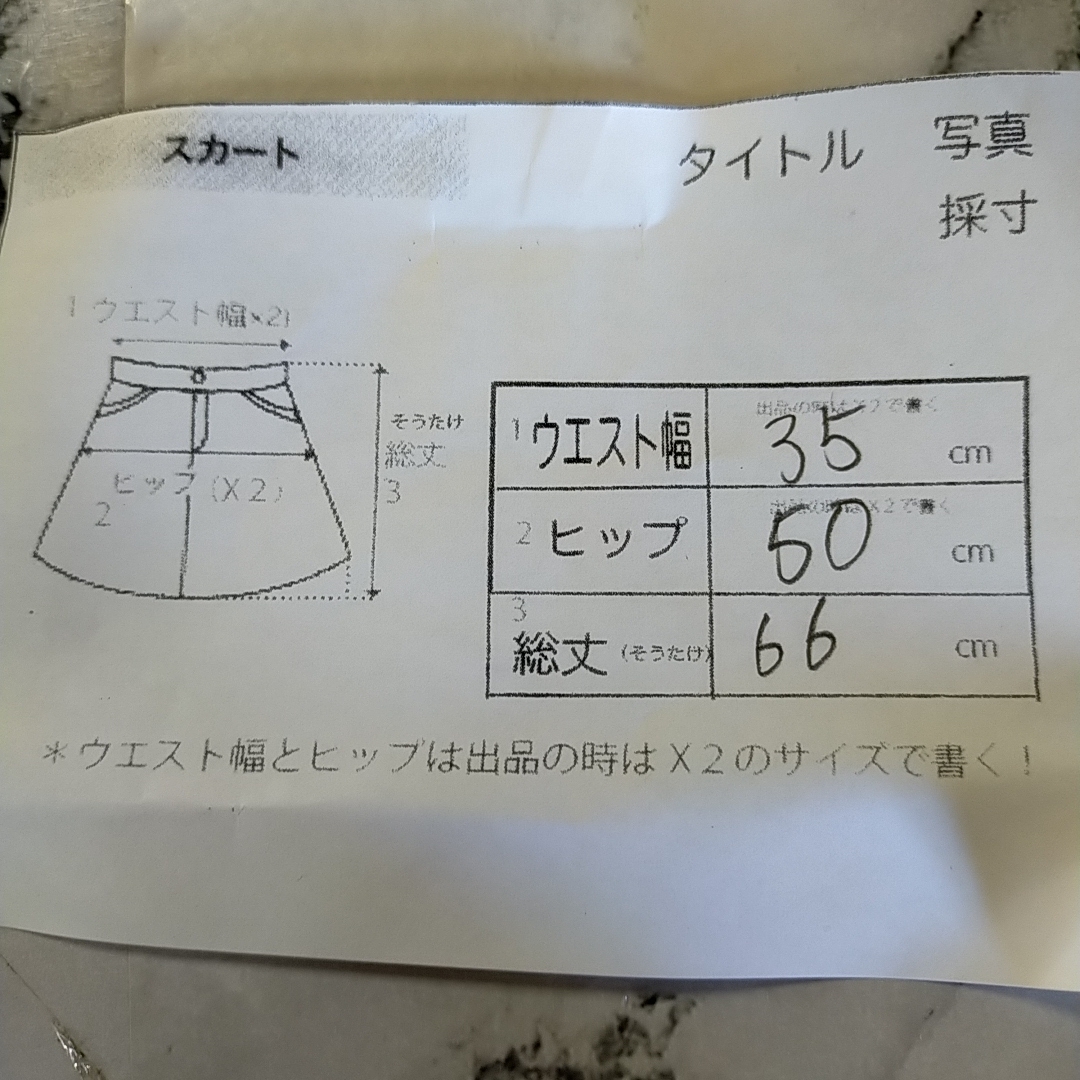 スカート
タイトル
写真
採寸
1 ウエスト幅×2)
そうたけ
総丈
3
ヒップ (X2)
2
1 ウエスト幅
出品の時はX2で書く
35 cm
2 ヒップ
出品の時はX2で書く
50 cm
3
総丈 (そうたけ) 66 cm
*ウエスト幅とヒップは出品の時はX2のサイズで書く!